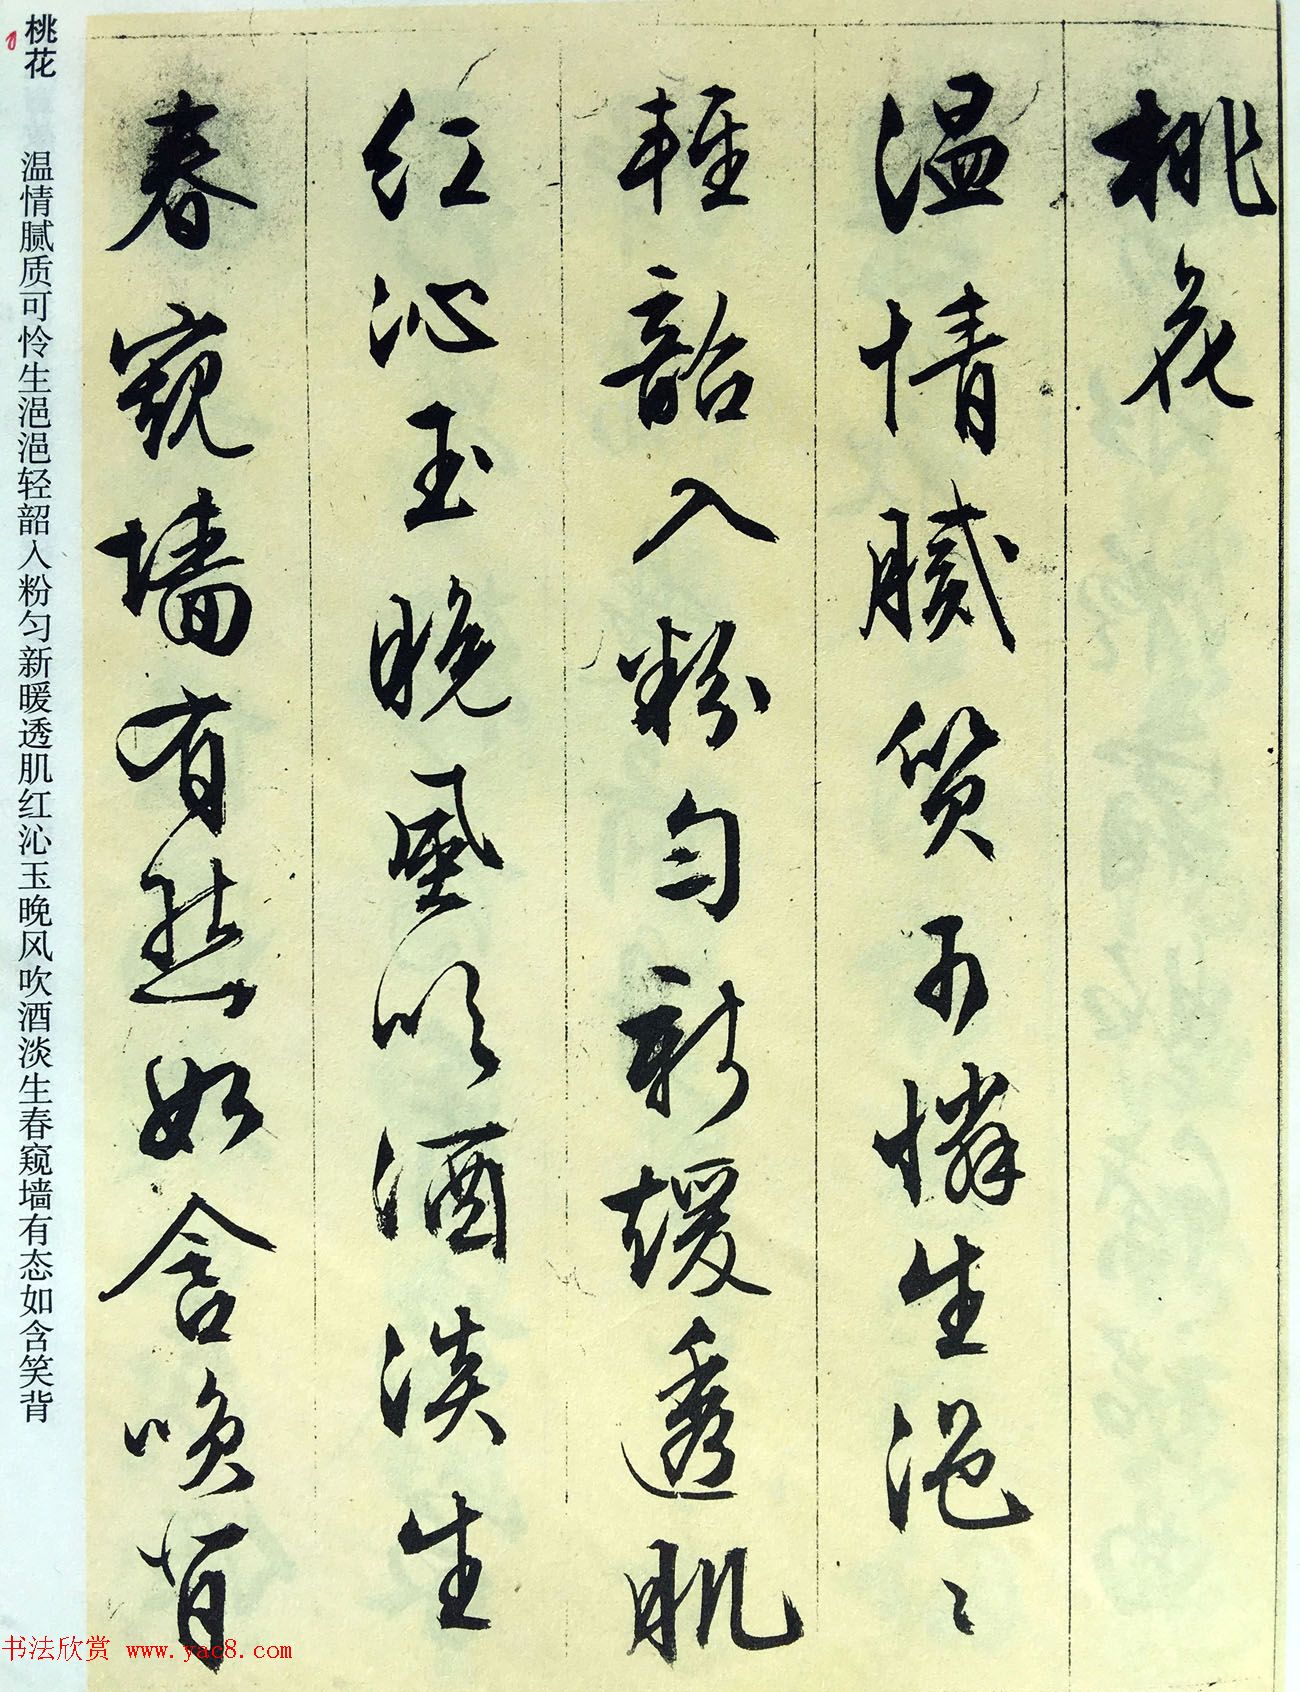 桃花
温情腻質可憐生浥〻
輕韶入粉匀新暖透肌
红沁玉晚風吹酒淡生
春窺墙有態如含唉背
桃花 温情腻质可怜生浥浥轻韶入粉匀新暖透肌红沁玉晚风吹酒淡生春窥墙有态如含笑背
书法欣赏 www.yac8.com